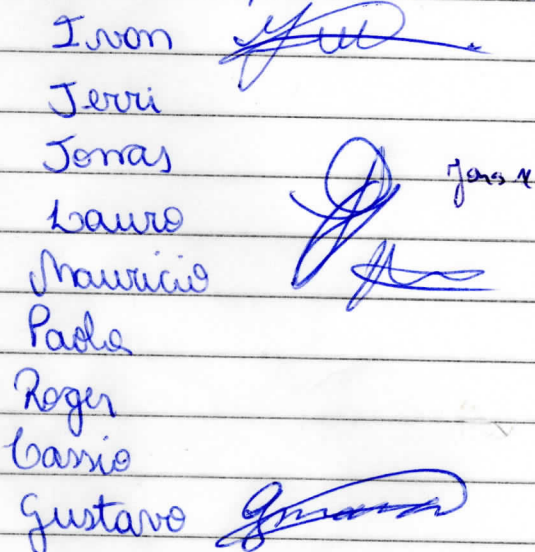 Ivon
Jerri
Jonas
Lauro
Mauricio
Paola
Roger
Cassio
Gustavo